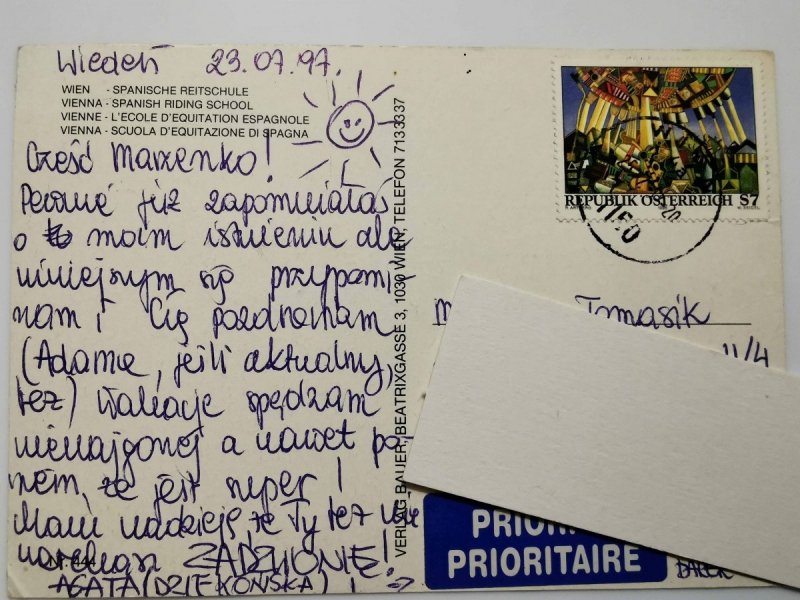 Wiedeń 23.07.97.
WIEN - SPANISCHE REITSCHULE
VIENNA - SPANISH RIDING SCHOOL
VIENNE - L'ECOLE D'EQUITATION ESPAGNOLE
VIENNA - SCUOLA D'EQUITAZIONE DI SPAGNA
Cześć Marzenko!
Pewnie już zapomniałaś
o moim istnieniu ale
niniejszym się przypomi-
nam i Cię pozdrawiam
(Adama, jeśli aktualny,
też) Wakacje spędzam
nienajgorzej a nawet po-
wiem, że jest super!
Mam nadzieję, że Ty też nie
narzekasz ZADZWONIĘ!
AGATA (DZIEKOŃSKA)
VERLAG BAUER, BEATRIXGASSE 3, 1030 WIEN, TELEFON 7133337
REPUBLIK ÖSTERREICH S7
Tomasik
11/4
PRIORITAIRE